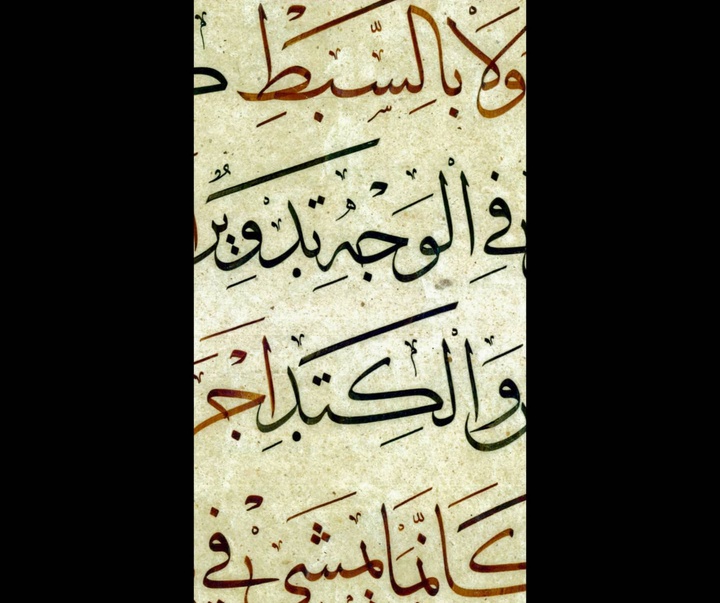 وَلَا بِالسَّبْطِ
فِي الْوَجْهِ تَدْوِيرٌ
وَالْكَتَدِ أَجْر
كَأَنَّمَا يَمْشِي فِي